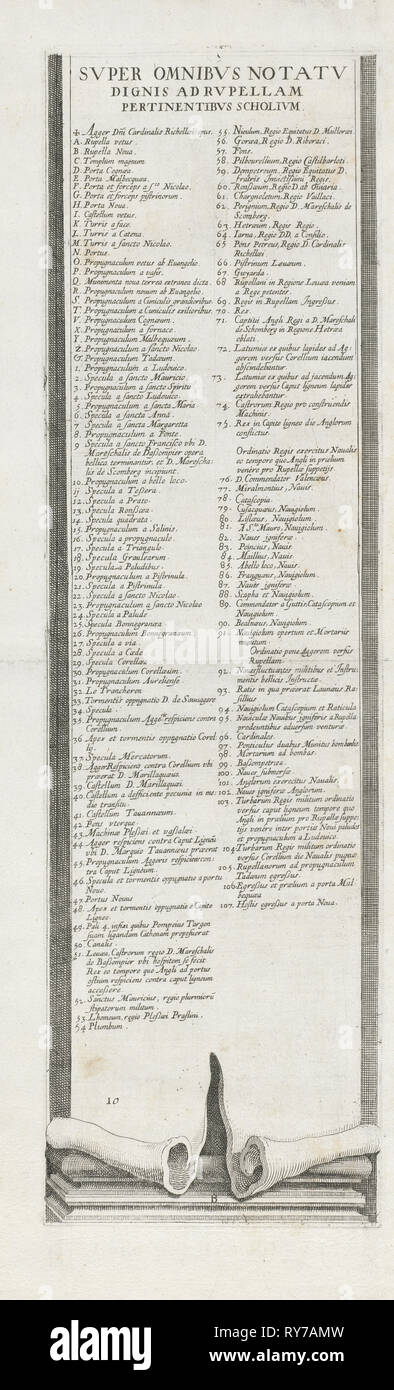 SVPER OMNIBVS NOTATV
DIGNIS AD RVPELLAM
PERTINENTIBVS SCHOLIVM.
Agger Dni Cardinalis Richelloi opus.
A. Rupella vetus.
B. Rupella Noua.
C. Templum magnum
D. Porta Cognea.
E. Porta Malbecquea.
F. Porta et forceps a sto Nicolao.
G. Porta et forceps pistrinorum.
H. Porta Noua.
I. Castellum vetus.
K. Turris a face.
L. Turris a Catena.
M. Turris a sancto Nicolao.
N. Portus.
O. Propugnaculum vetus ab Euangelio.
P. Propugnaculum a vasis.
Q. Munimenta noua terrea extrinea dicta.
R. Propugnaculum nouum ab Euangelio.
S. Propugnaculum a Cuniculis grandioribus.
T. Propugnaculum a Cuniculis exilioribus.
V. Propugnaculum Cogneum.
X. Propugnaculum a fornace.
Y. Propugnaculum Malbequaeum.
Z. Propugnaculum a sancto Nicolao.
&. Propugnaculum Tadaeum.
1. Propugnaculum a Ludouico.
2. Specula a sancto Mauricio.
3. Propugnaculum a sancto Spiritu
4. Specula a sancto Ludouico.
5. Propugnaculum a sancta Maria
6. Specula a sancta Anna.
7. Specula a sancta Margaretta
8. Propugnaculum a Fonte.
9. Specula a sancto Francisco vbi D.
Mareschalis de Bassonpier opera
bellica terminantur, et D. Mareschalis
de Scomberg incipiunt.
10. Propugnaculum a bello loco.
11. Specula a Tessera.
12. Specula a Prato.
13. Specula Ronsaea.
14. Specula quadrata.
15. Propugnaculum a Salinis.
16. Specula a propugnaculo.
17. Specula a Triangulo.
18. Specula Grauleorum.
19. Specula a Paludibus.
20. Propugnaculum a Pistrinula.
21. Specula a Pistrinula.
22. Specula a sancto Nicolao
23. Propugnaculum a sancto Nicolao
24. Specula a Palude
25. Specula Bonnegranaea
26. Propugnaculum Bonnegraneum
27. Specula a via
28. Specula a Caede
29. Specula Corellaea.
30. Propugnaculum Corellaeum.
31. Propugnaculum Aurelsense.
32. Le Trancheren
33. Tormentis oppugnatio D. de Sauuagere
34. Specula.
35. Propugnaculum Aggeris respiciens contra
Corellum.
36. Apex et tormentis oppugnatio Corelli.
37. Specula Mercatorum.
38. Agger Respiciens contra Corellum vbi
praeerat D. Marillaquaus.
39. Castellum D. Marillaquai
40. Castellum a deficiente pecunia in medio
transitu.
41. Castellum Tauannaeum.
42. Fons vterque.
43. Machinae Plessiaei et vassalaei.
44. Agger respiciens contra Caput Ligneum
vbi D. Marquis Tauannaeus praeerat
45. Propugnaculum Aggeris respiciens contra
Caput Ligneum.
46. Specula et tormentis oppugnatio a portu
Nouo.
47. Portus Nouus
48. Apex et tormentis oppugnatio a Capite
Ligneo.
49. Pali 4. infixi quibus Pompeius Targon
suam ligandam Cathenam proposuerat
50. Canalis.
51. Leuaea, Castrorum regio D. Mareschalis
de Bassompier vbi hospitem se fecit
Rex eo tempore quo Angli ad portus
ostium respiciens contra caput ligneum
accessere.
52. Sanctus Mauricius, regio plurimorum
stipatorum militum.
53. Lhomeum, regio Plessiaei Praslini.
54. Plumbum
55. Nieulum, Regio Equitatus D. Mulloraei
56. Goraea, Regio D. Riboraci.
57. Fons.
58. Pilbourellum, Regio Castilbarloti.
59. Dompetraeum, Regio Equitatus D.
fratris Inuictissimi Regis.
60. Ronsaeum, Regio D. ab Oinaria.
61. Chargneletum, Regio Vaillaci
62. Perignium, Regio D. Mareschalis de
Scomberg.
63. Hetraeum, Regis Regio.
64. Iarna, Regio DD. a Consilio.
65. Pons Petreus, Regio D. Cardinalis
Richellaei
66. Pistrinum Leuaeum.
67. Guyarda.
68. Rupellani in Regione Leuaea veniam
a Rege petentes.
69. Regis in Rupellam Ingressus.
70. Rex.
71. Captiui Angli Regi a D. Mareschali
de Schomberg in Regione Hetraea
oblati.
72. Latumiae ex quibus lapides ad Aggerem
versus Corellium iaciendum
abscindebantur.
73. Latumiae ex quibus ad jaciendum Aggerem
versus Caput ligneum lapides
extrahebantur.
74. Castrorum Regio pro construendis
Machinis.
75. Rex in Capite ligneo die Anglorum
conflictus.
Ordinatio Regis exercitus Naualis
eo tempore quo Angli in praelium
venere pro Rupellae suppetijs.
76. D. Commendator Valencaeus.
77. Miralmontius, Nauis.
78. Catascopia.
79. Cusacquaus, Naugiolum.
80. Lislaeus, Naugiolum.
81. A Sto Mauro, Naugiolum.
82. Naues igniferae
83. Poincius, Nauis.
84. Maillius, Nauis.
85. Abelli loco, Nauis.
86. Frauguaeus, Naugiolum.
87. Nauis igniferae
88. Scapha et Naugiolum.
89. Commendator a Guttis, Catascopium et
Naugiolum.
90. Bealnaeus, Naugiolum.
91. Naugiolum opertum et Mortariis
Ordinatio pone Aggerem versus
Rupellam.
92. Naues fluctuantes militibus et Instrumentis
bellicis Instructae.
93. Ratis in qua praeerat Launaeus Rasillius
94. Naugiolum Catascopium et Raticula
95. Nauiculae Nauibus igniferis a Rupella
prodeuntibus aduersum venturae
96. Cardinales.
97. Ponticulus duabus Munitus bombardis
98. Mortarium ad bombas.
99. Bassompetraea.
100. Nauis submersa
101. Anglorum exercitus Naualis.
102. Naues igniferae Anglorum.
103. Turbarum Regis militum ordinatio
versus caput ligneum tempore quo
Angli in praelium pro Rupellae suppetijs
venere inter portus Noui paludes
et propugnaculum a Ludouico.
104. Turbarum Regis militum ordinatio
versus Corellium die Naualis pugnae
105. Rupellanorum ad propugnaculum
Tadaeum egressus.
106. Egressus et praelium a porta Malbequaea
107. Hostis egressus a porta Noua.
10
B
alamy
alamy
Image ID: RY7AMW
www.alamy.com